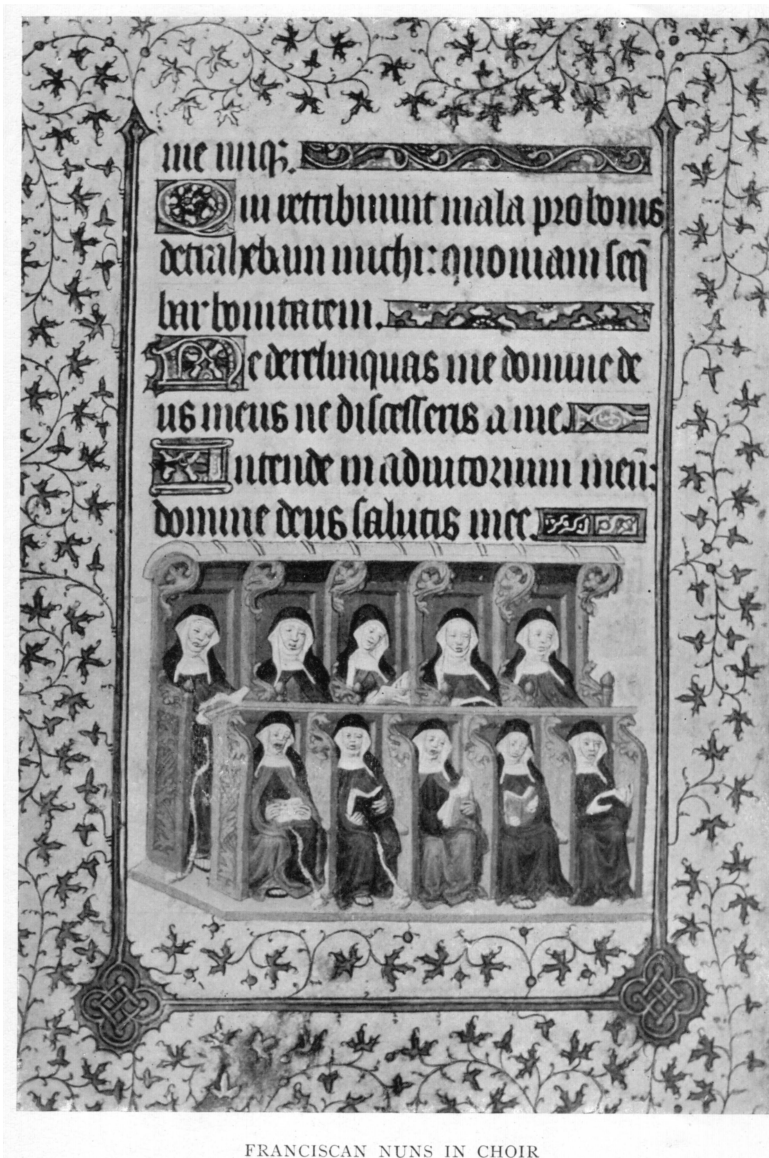 me iniq̃.
Qui retribuunt mala pro bonis
detrahebant michi: quoniam seq̃
bar bonitatem.
Ne derelinquas me domine de
us meus ne discesseris a me.
Intende in adiutorium meũ:
domine deus salutis mee.
FRANCISCAN NUNS IN CHOIR